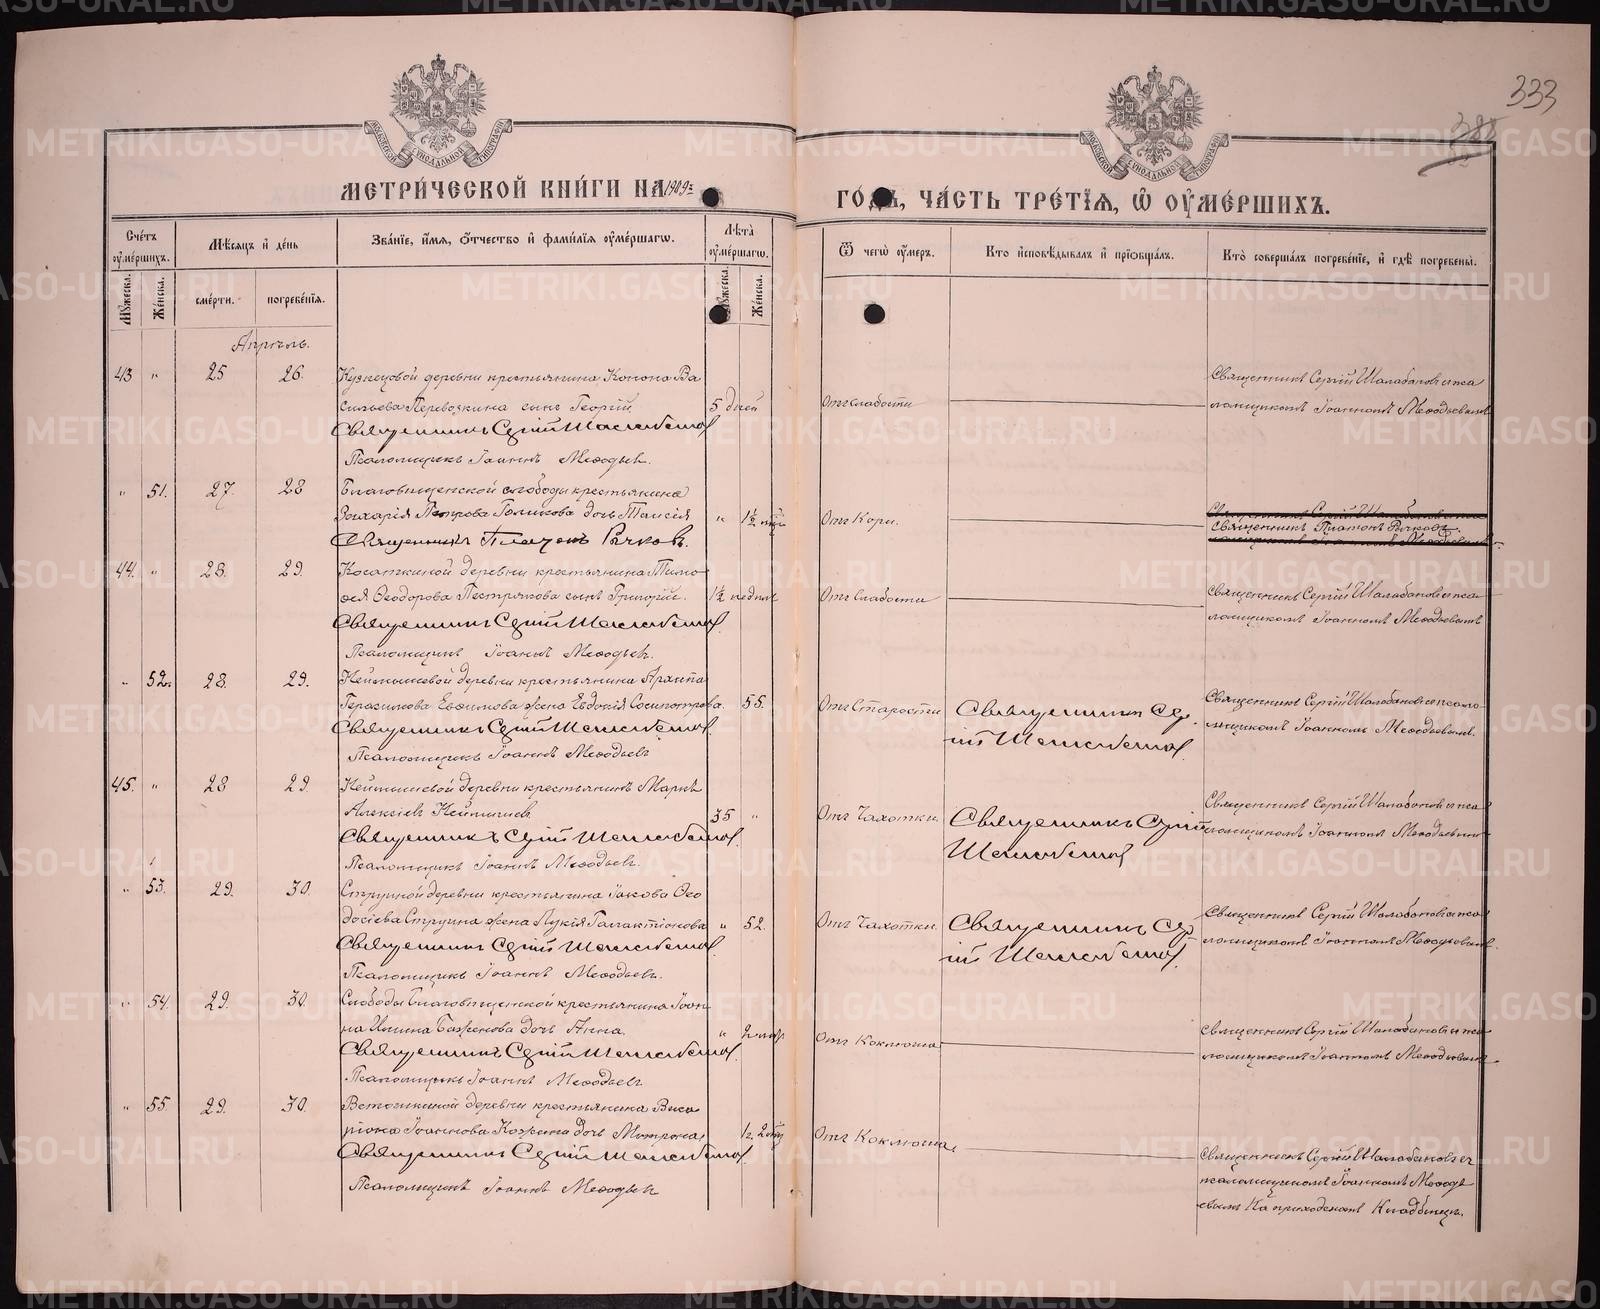 333
МЕТРИЧЕСКОЙ КНИГИ НА 1909 г.
ГОДЪ, ЧАСТЬ ТРЕТІЯ, Ѿ ОУМЕРШИХЪ.
Счетъ оумершихъ.
Мѣсяцъ и день
Званіе, имя, отчество и фамилія оумершагѡ.
Лѣта оумершагѡ.
Ѿ чегѡ оумеръ.
Кто исповѣдывалъ и пріобщалъ.
Кто совершалъ погребеніе, и гдѣ погребены.
Мужеска.
Женска.
смерти.
погребенія.
Мужеска.
Женска.
Апрѣль.
43 " 25 26. Кузнецовой деревни крестьянина Конона Ва
сильева Перевозкина сынъ Георгій 5 дней Отъ слабости
Священникъ Сергій Шалабановъ и пса
ломщикомъ Іоанномъ Меѳодьевымъ
Священникъ Сергій Шалабановъ
Псаломщикъ Іоаннъ Меѳодьев.
" 51. 27. 28 Благовѣщенской слободы крестьянина
Захарія Петрова Голикова дочь Таисія " 1½ Отъ Кори.
Священникъ Платонъ Рычковъ.
Священникъ Платонъ Рычковъ.
44. " 28. 29. Косаткиной деревни крестьянина Тимо
ѳея Ѳеодорова Пестрякова сынъ Григорій. 1½ недѣли Отъ Слабости
Священникъ Сергій Шалабановъ и пса
ломщикомъ Іоанномъ Меѳодьевымъ
Священникъ Сергій Шалабановъ
Псаломщикъ Іоаннъ Меѳодьев.
" 52. 28. 29. деревни крестьянина
Герасимова Евѳимова жена Евдокія Сосипатрова. 55. Отъ Старости
Священникъ Сергій Шалабановъ
Священникъ Сергій Шалабановъ и псало
мщикомъ Іоанномъ Меѳодьевымъ.
Священникъ Сергій Шалабановъ
Псаломщикъ Іоаннъ Меѳодьевъ
45. " 28 29. деревни крестьянинъ Маркъ
Алексіевъ 35 " Отъ Чахотки.
Священникъ Сергій
Шалабановъ
Священникъ Сергій Шалабановъ и пса
ломщикомъ Іоанномъ Меѳодьевымъ
Священникъ Сергій Шалабановъ
Псаломщикъ Іоаннъ Меѳодьевъ.
" 53. 29. 30. Струиной деревни крестьянина Іакова Ѳео
досіева Струина жена Лукія Галактіонова " 52. Отъ Чахотки.
Священникъ Сер
гій Шалабановъ
Священникъ Сергій Шалабановъ и пса
ломщикомъ Іоанномъ Меѳодьевымъ
Священникъ Сергій Шалабановъ
Псаломщикъ Іоаннъ Меѳодьевъ.
" 54. 29. 30. Слободы Благовѣщенской крестьянина Іоан
на Ильина Баженова дочь Анна. " 2 мѣс Отъ Коклюша
Священникъ Сергій Шалабановъ и пса
ломщикомъ Іоанномъ Меѳодьевымъ
Священникъ Сергій Шалабановъ
Псаломщикъ Іоаннъ Меѳодьевъ
" 55. 29. 30. деревни крестьянина Висса
ріона Іоаннова дочь Матрона 1 г. 2 Отъ Коклюша
Священникъ Сергій Шалабановъ
Псаломщикъ Іоаннъ Меѳодьевъ
Священникъ Сергій Шалабановъ съ
псаломщикомъ Іоанномъ Меѳодь
евымъ На приходскомъ Кладбищѣ.
METRIKI.GASO-URAL.RU